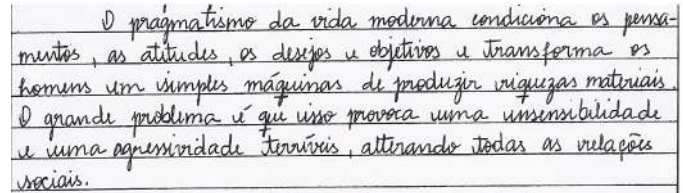 O pragmatismo da vida moderna condiciona os pensa-
mentos, as atitudes, os desejos e objetivos e transforma os
homens em simples máquinas de produzir riquezas materiais.
O grande problema é que isso provoca uma insensibilidade
e uma agressividade terríveis, alterando todas as relações
sociais.